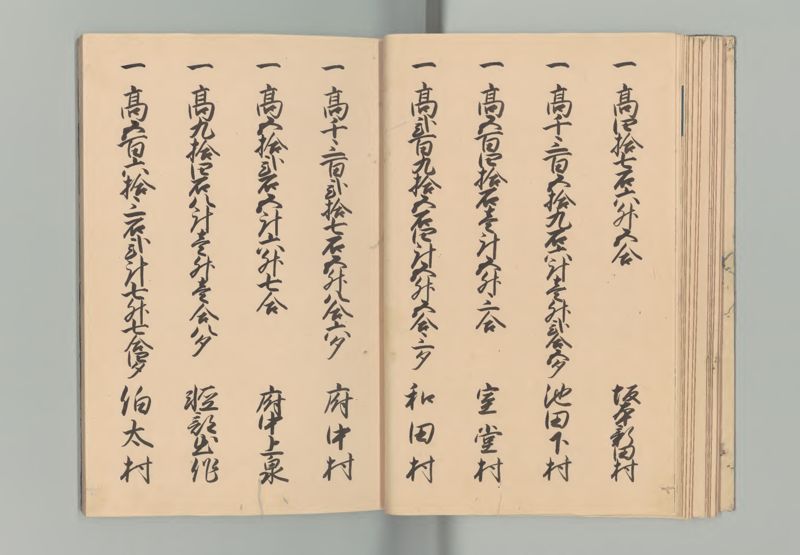 一 高四拾七石六升五合 坂本新田村
一 高千三百五拾九石六斗壱升弐合五夕 池田下村
一 高五百四拾石壱斗五升三合 室堂村
一 高弐百九拾五石四斗五升五合三夕 和田村
一 高千三百弐拾七石五升八合六夕 府中村
一 高五拾弐石五斗六升七合 府中上泉
一 高九拾四石八斗壱升壱合八夕 出作
一 高五百六拾三石弐斗七升七合四夕 伯太村